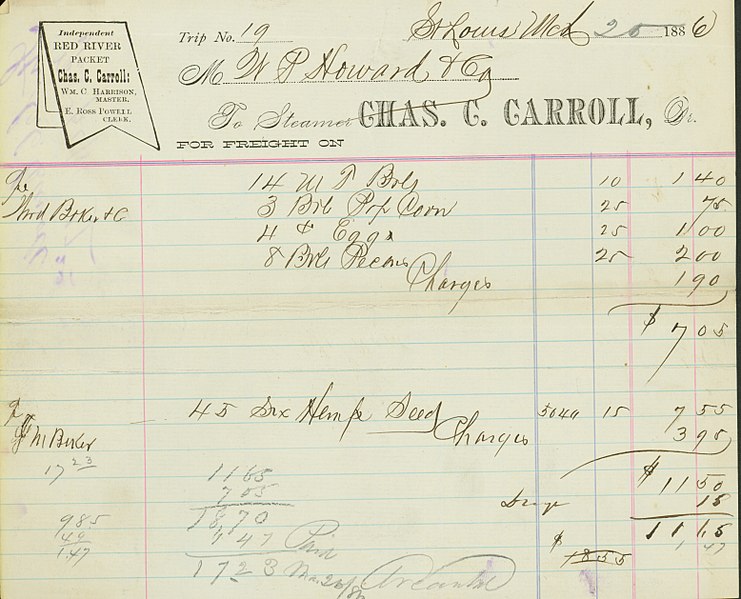 Independent
RED RIVER
PACKET
Chas. C. Carroll:
WM. C. HARRISON,
MASTER.
E. ROSS POWELL
CLERK.
Trip No. 19 St Louis Mch 25 1886
M W P Howard & Co
To Steamer CHAS. C. CARROLL, Dr.
FOR FREIGHT ON
14 Brls 10 1 40
3 Brl Pop Corn 25 75
4 " Eggs 25 1 00
8 Brls Pecans 25 2 00
Charges 1 90
$ 7 05
45 Sx Hemp Seed 5040 15 7 55
Charges 3 95
J M Beker
$ 11 50
17 23
11 65
7 05
15
18,70
11 65
985
1 47 Paid
1 47
49
$ 1855
147
17 23